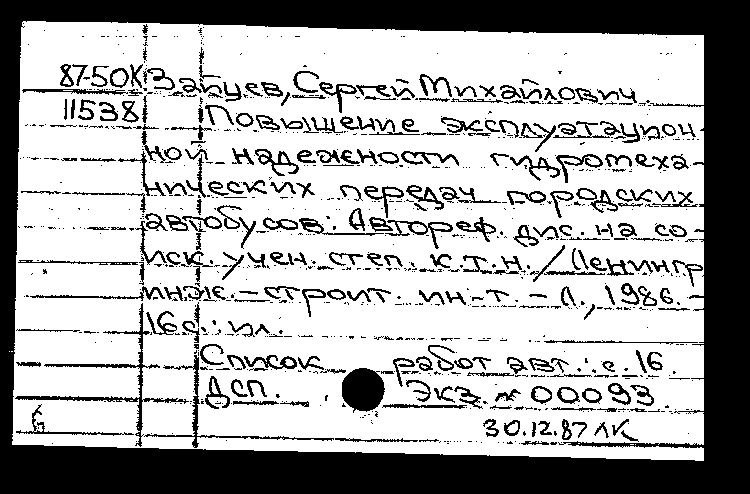 87-50К Зайцев, Сергей Михайлович.
11538 Повышение эксплуатацион-
ной надежности гидромеха-
нических передач городских
автобусов: Автореф. дис. на со-
иск. учен. степ. к.т.н. / Ленингр
инж.-строит. ин-т. - Л., 1986. -
16 с.: ил.
Список работ авт.: с. 16.
ДСП. Экз. № 00093.
30.12.87 ЛК